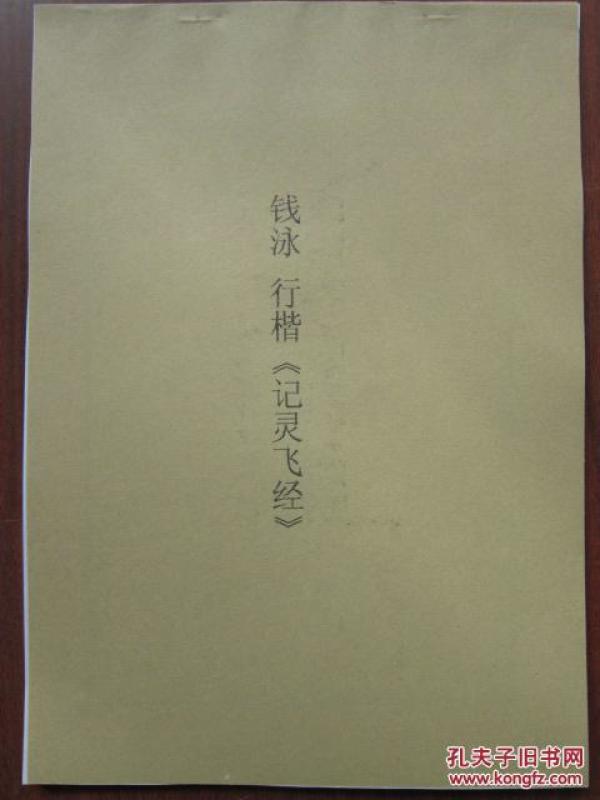 钱泳 行楷《记灵飞经》
孔夫子旧书网
www.kongfz.com